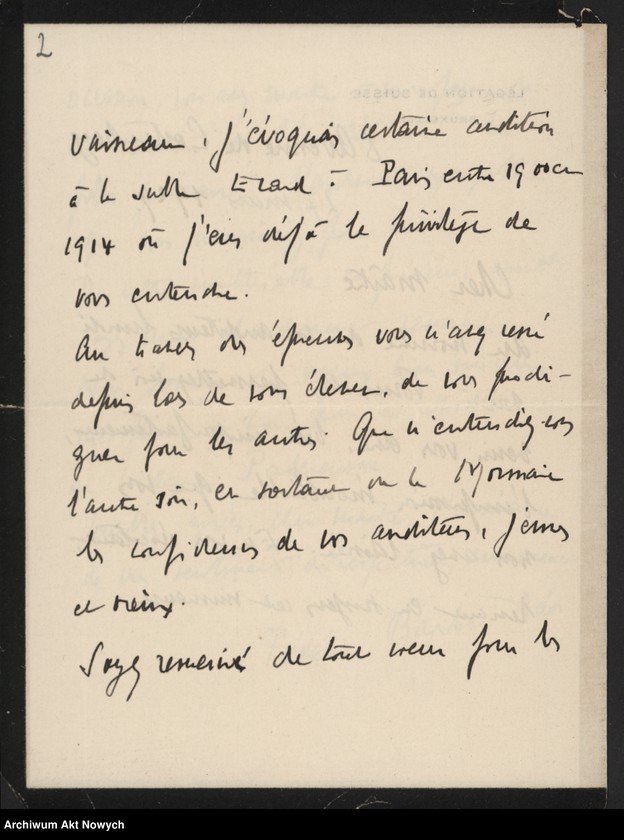 2
vainqueur, j'évoquais certaine audition
à la salle Erard à Paris entre 1900 et
1914 où j'eus déjà le privilège de
vous entendre.
Au travers des épreuves vous n'avez cessé
depuis lors de vous élever, de vous prodi-
guer pour les autres. Que n'entendiez-vous
l'autre soir, en sortant de la Monnaie
les confidences de vos auditeurs, jeunes
et vieux.
Soyez remercié de tout coeur pour les
LÉGATION DE SUISSE
Cher Maître
Archiwum Akt Nowych